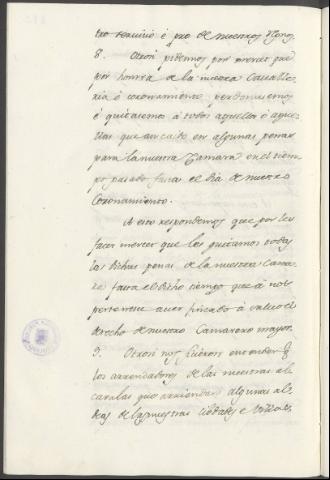 tro servicio é pro de nuestros Regnos
8. Otrosi pidemos por merced que
por honrra de la nuestra Caualle
ria é coronamiento perdonasemos
é quitasemos á todos aquellos ó aque
llas que an caido en algunas penas
para la nuestra Camara en el tiem
po pasado fasta el dia de nuestro
Coronamiento.
A esto respondemos que por les
facer merced que les quitamos todas
las dichas penas de la nuestra Cama
ra fasta el dicho tiempo que á nos
pertenesce auer fincado á saluo el
derecho de nuestro Camarero mayor.
9. Otrosi nos fisieron entender q̃
los arrendadores de las nuestras al
caualas que arriendan algunas al
deas de las nuestras cibdades e Villas,